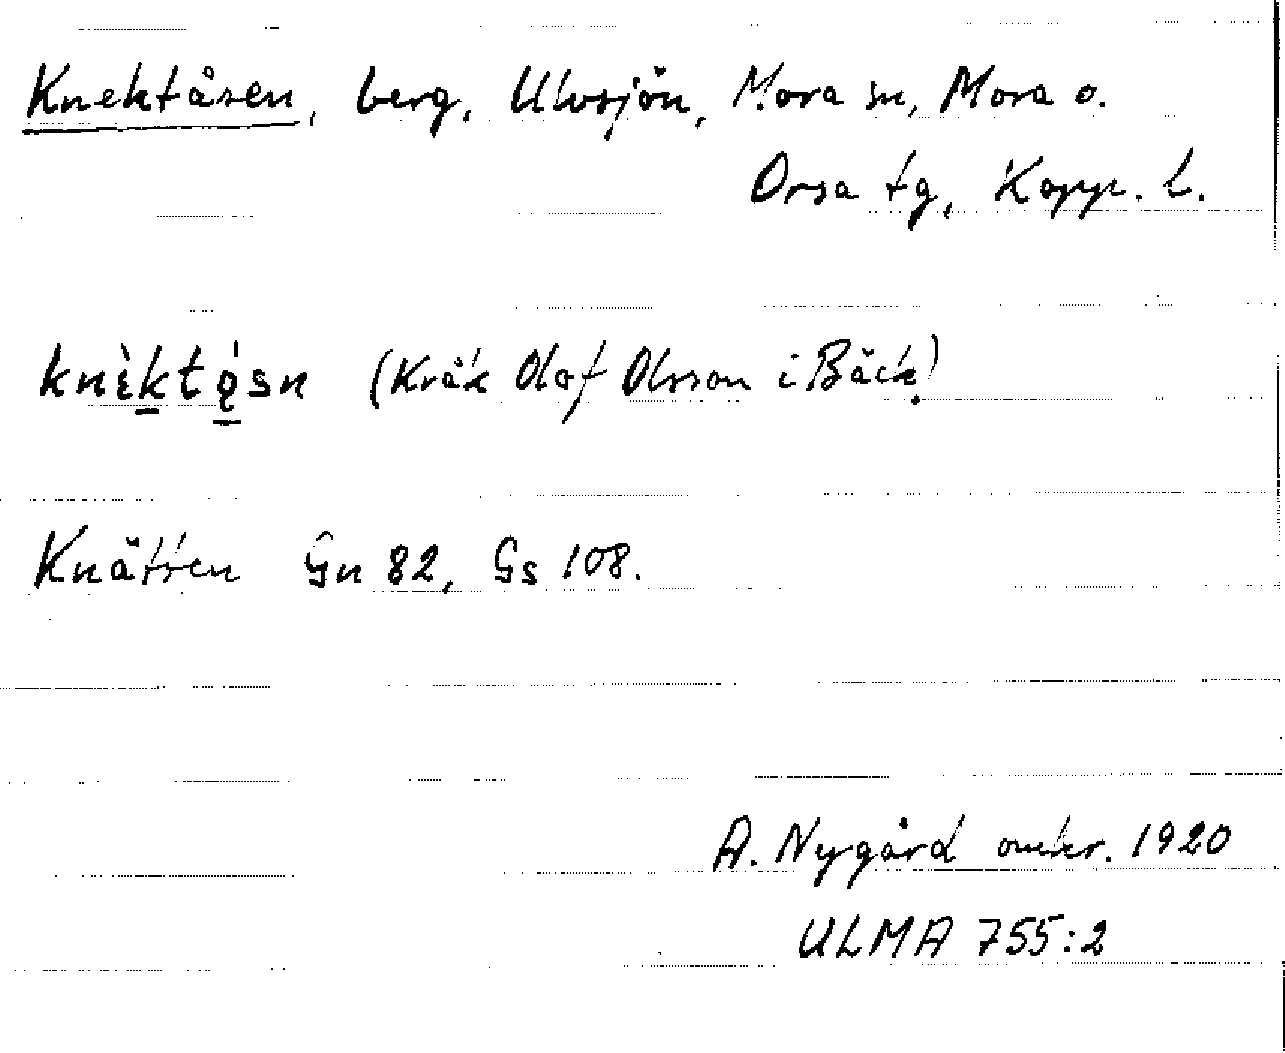 Knektåsen, berg, Ulvsjön, Mora sn, Mora o.
Orsa tg, Kopp. l.
knèktǫ́sn (Kråk Olof Olsson i Bäck)
Knätten Gn 82, Gs 108.
A. Nygård omkr. 1920
ULMA 755:2